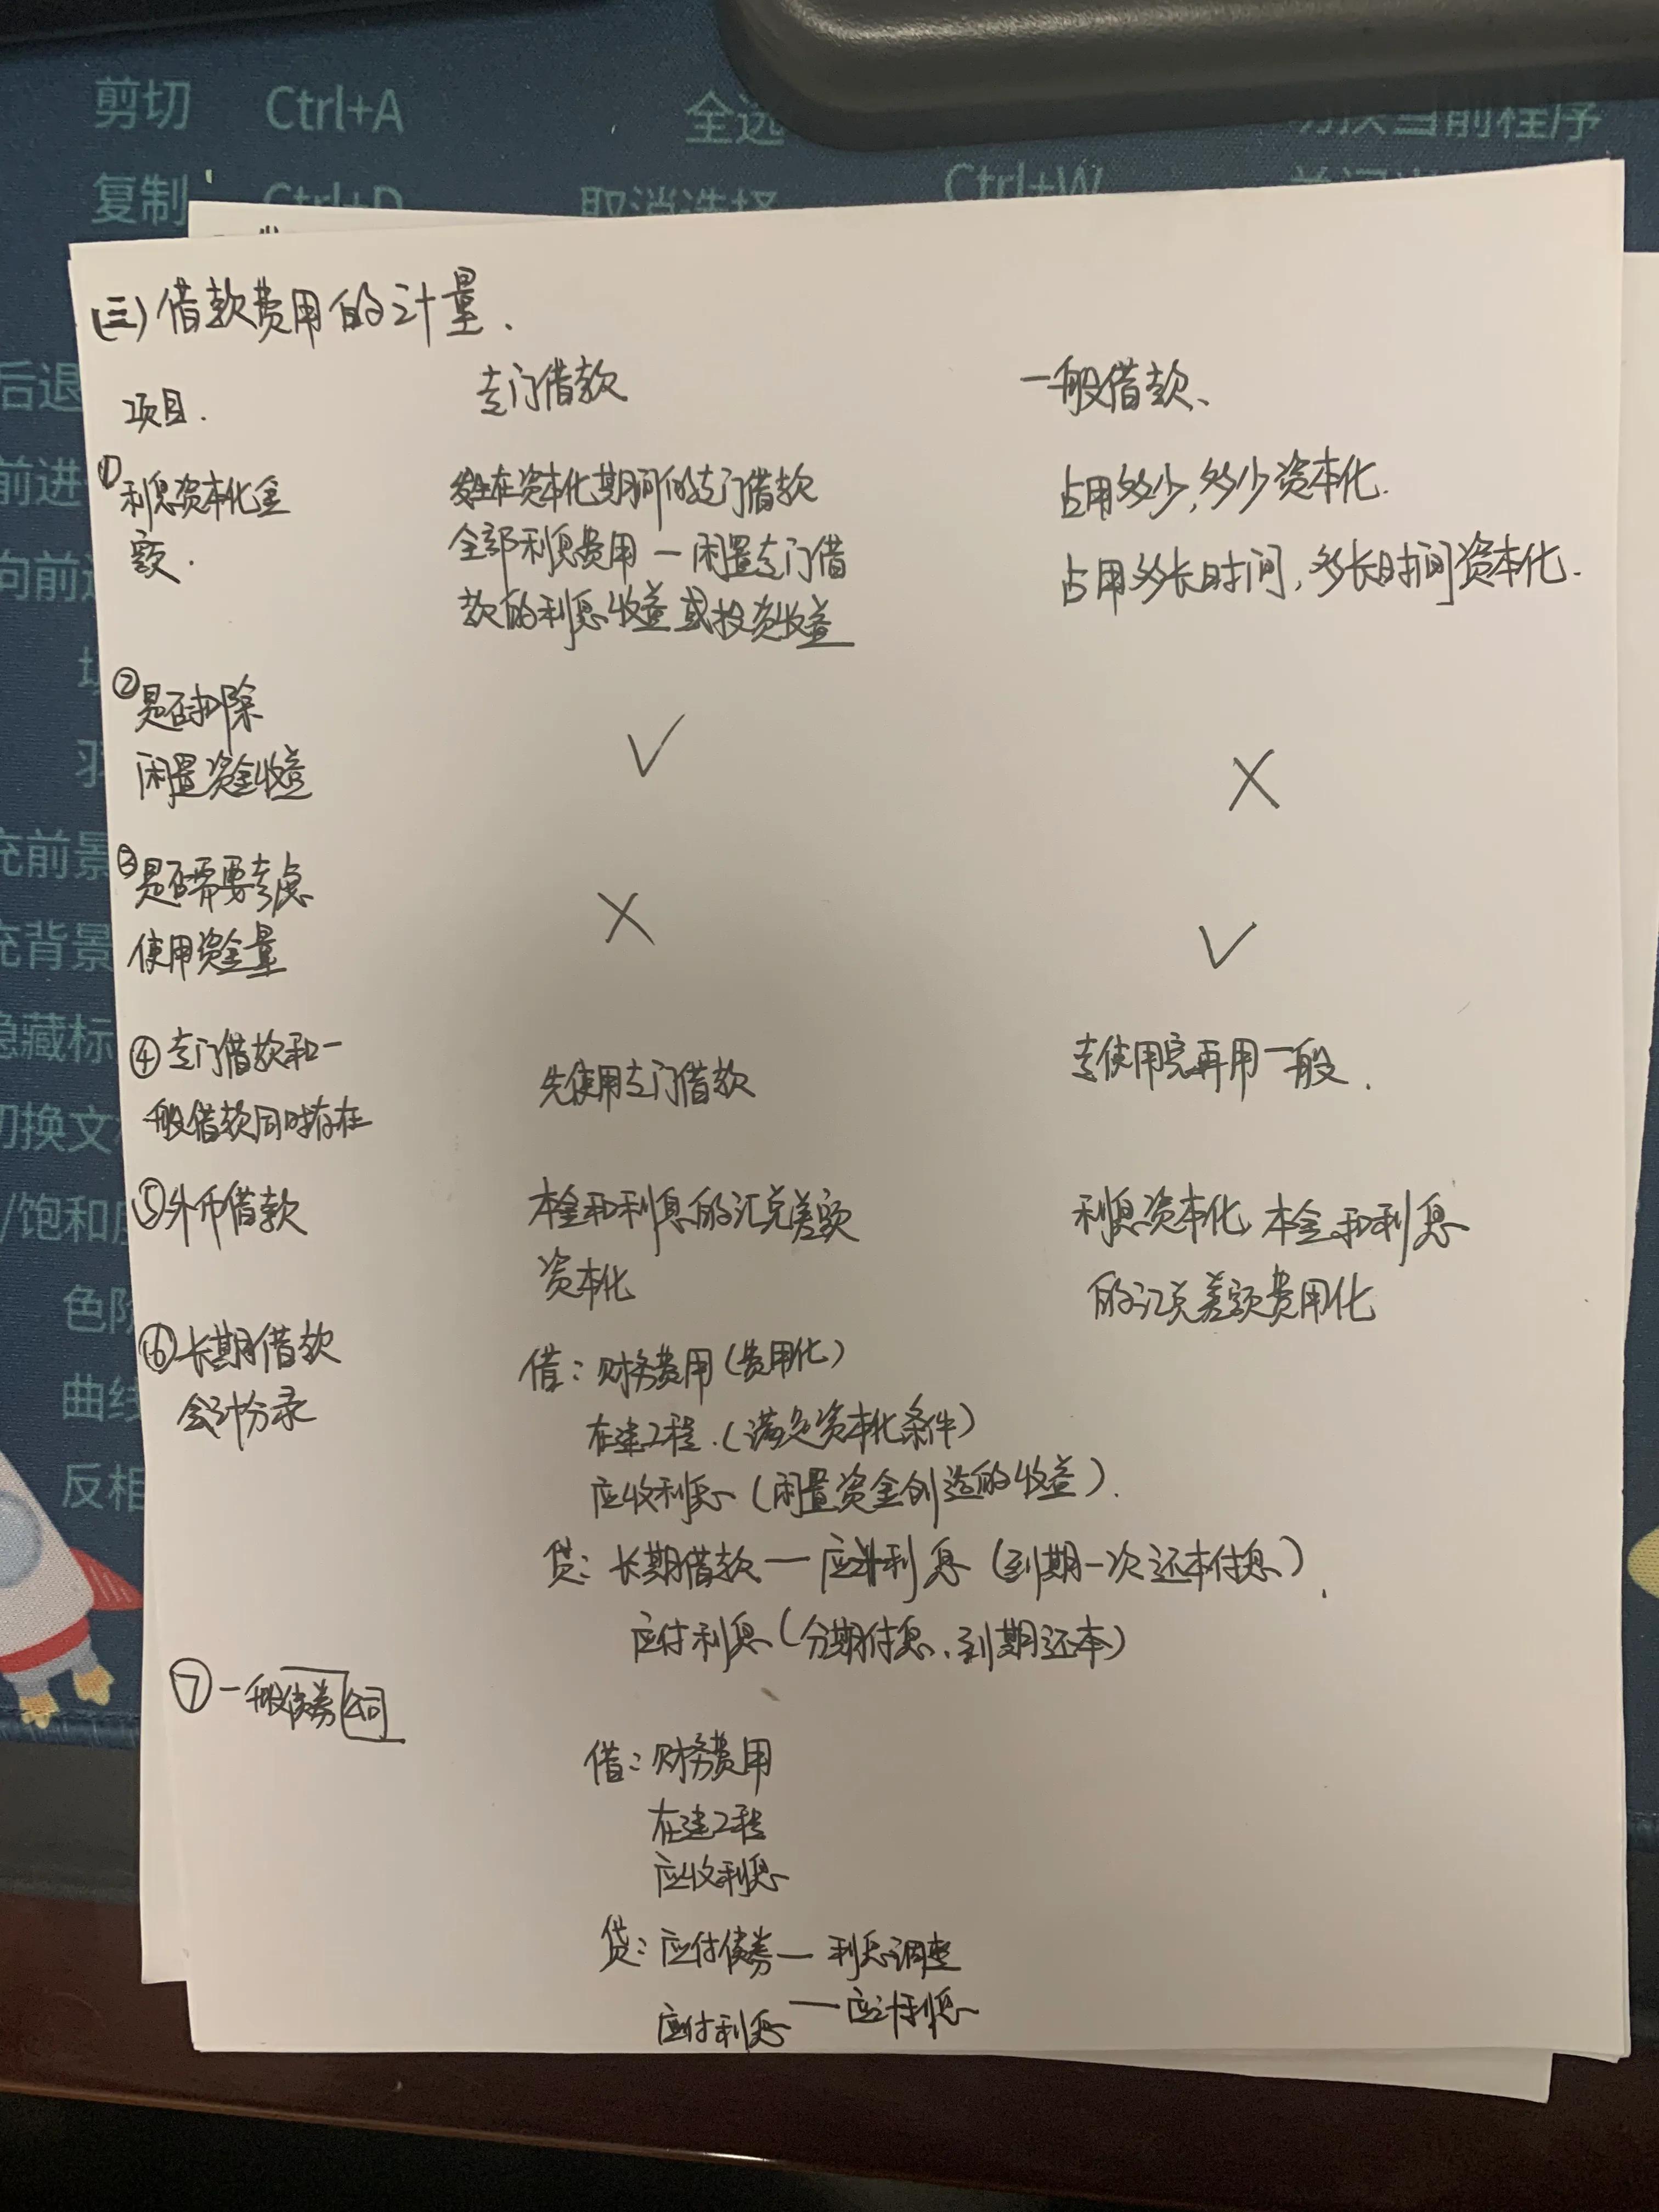 剪切 Ctrl+A 全选
复制 Ctrl+D 取消选择 Ctrl+W
后退
前进
向前
充前景
充背景
隐藏标
切换文
/饱和度
色阶
曲线
反相
(三)借款费用的计量.
项目. 专门借款 一般借款、
①利息资本化金 发生在资本化期间的专门借款 占用多少,多少资本化.
额. 全部利息费用一闲置专门借 占用多长时间,多长时间资本化.
款的利息收益或投资收益
②是否扣除 ✓ ×
闲置资金收益
③是否需要考虑 × ✓
使用资金量
④专门借款和一 先使用专门借款 专使用完再用一般.
般借款同时存在
⑤外币借款 本金和利息的汇兑差额 利息资本化,本金和利息
资本化 的汇兑差额费用化
⑥长期借款 借:财务费用(费用化)
会计分录 在建工程.(满足资本化条件)
应收利息(闲置资金创造的收益).
贷:长期借款一应计利息(到期一次还本付息).
应付利息(分期付息、到期还本)
⑦一般债券公司
借:财务费用
在建工程
应收利息
贷:应付债券一利息调整
一应计利息
应付利息